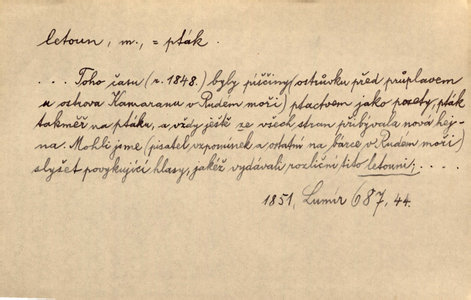 letoun, m., = pták.
... Toho času (r. 1848.) byly písčiny (ostrůvku před průplavem
u ostrova Kamaranu v Rudém moři) ptactvem jako posety, pták
takměř na ptáku, a vždy ještě ze všech stran přibývala nová hej-
na. Mohli jsme (pisatel vzpomínek a ostatní na bárce v Rudém moři)
slyšet povykující hlasy, jakéž vydávali rozliční tito letouni; ....
1851, Lumír 687, 44.